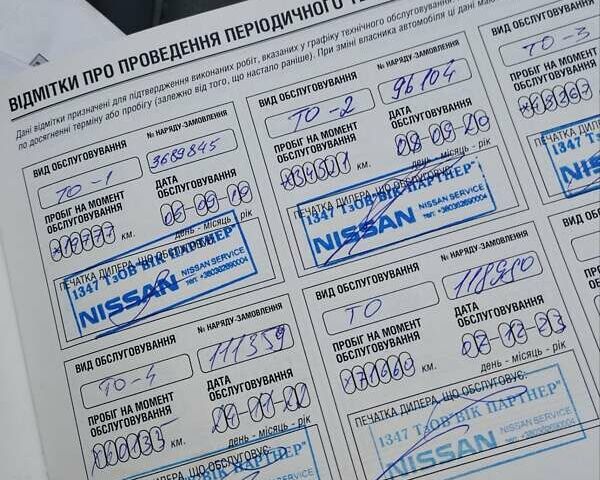 ВІДМІТКИ ПРО ПРОВЕДЕННЯ ПЕРІОДИЧНОГО
Дані відмітки призначені для підтвердження виконаних робіт, вказаних у графіку технічного обслуговування.
по досягненні терміну або пробігу (залежно від того, що настало раніше). При зміні власника автомобіля ці дані
ВИД ОБСЛУГОВУВАННЯ
№ НАРЯДУ-ЗАМОВЛЕННЯ
ТО-1
3689845
ПРОБІГ НА МОМЕНТ ОБСЛУГОВУВАННЯ
ДАТА ОБСЛУГОВУВАННЯ
км.
день - місяць - рік
ПЕЧАТКА ДИЛЕРА, ЩО ОБСЛУГОВУЄ:
1347 ТзОВ"ВІК ПАРТНЕР"
NISSAN
NISSAN SERVICE
тел: +380302690004
ВИД ОБСЛУГОВУВАННЯ
№ НАРЯДУ-ЗАМОВЛЕННЯ
ТО-2
96104
ПРОБІГ НА МОМЕНТ ОБСЛУГОВУВАННЯ
ДАТА ОБСЛУГОВУВАННЯ
км.
08-09-20
день - місяць - рік
ПЕЧАТКА ДИЛЕРА, ЩО ОБСЛУГОВУЄ:
1347 ТзОВ"ВІК ПАРТНЕР"
NISSAN
NISSAN SERVICE
тел: +380302690004
ВИД ОБСЛУГОВУВАННЯ
ТО-3
ПРОБІГ НА МОМЕНТ ОБСЛУГОВУВАННЯ
ПЕЧАТКА ДИЛЕРА
1347 ТзОВ
ВИД ОБСЛУГОВУВАННЯ
№ НАРЯДУ-ЗАМОВЛЕННЯ
ТО-4
111359
ПРОБІГ НА МОМЕНТ ОБСЛУГОВУВАННЯ
ДАТА ОБСЛУГОВУВАННЯ
км.
день - місяць - рік
ПЕЧАТКА ДИЛЕРА, ЩО ОБСЛУГОВУЄ:
1347 ТзОВ"ВІК ПАРТНЕР"
NISSAN
ВИД ОБСЛУГОВУВАННЯ
№ НАРЯДУ-ЗАМОВЛЕННЯ
ТО
118980
ПРОБІГ НА МОМЕНТ ОБСЛУГОВУВАННЯ
ДАТА ОБСЛУГОВУВАННЯ
71660 км.
день - місяць - рік
ПЕЧАТКА ДИЛЕРА, ЩО ОБСЛУГОВУЄ:
1347 ТзОВ"ВІК ПАРТНЕР"
NISSAN
NISSAN SERVICE